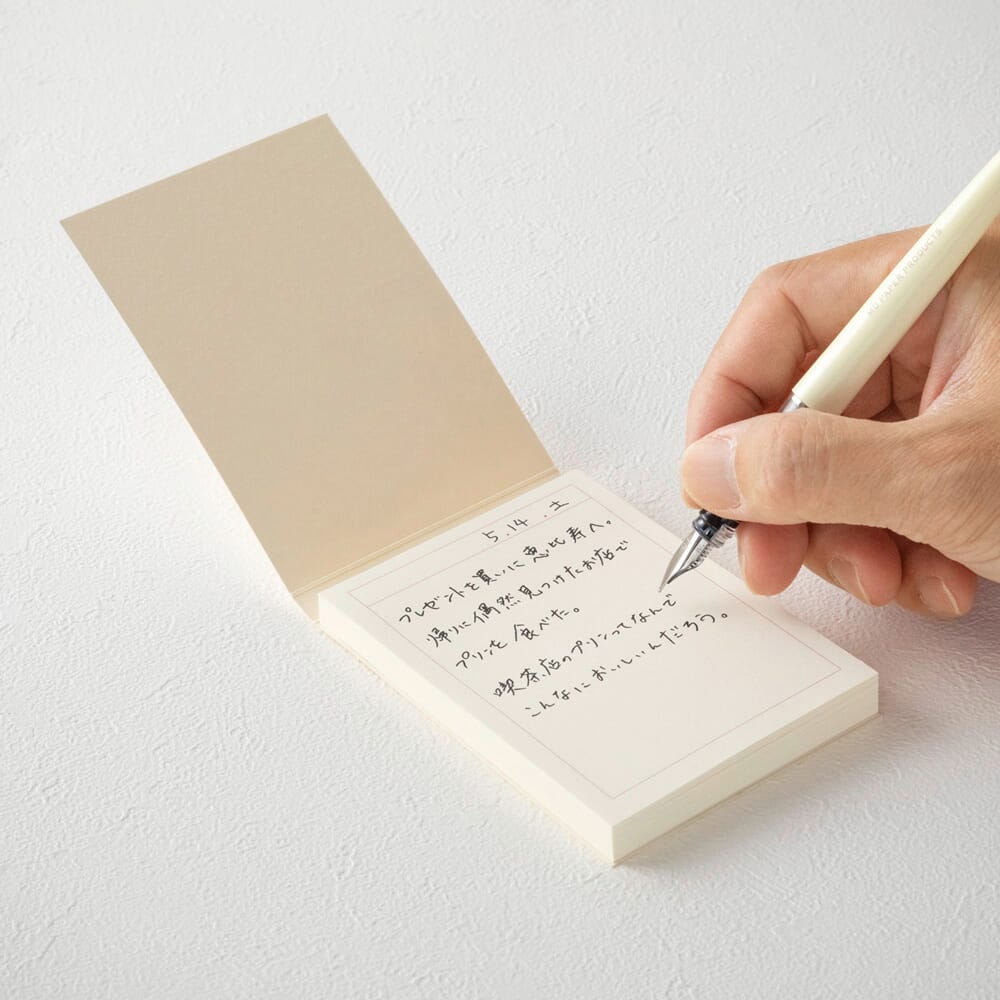 5.14.土
プレゼントを買いに恵比寿へ。
帰りに偶然見つけたお店で
プリンを食べた。
喫茶店のプリンってなんで
こんなにおいしいんだろう。
MD PAPER PRODUCTS